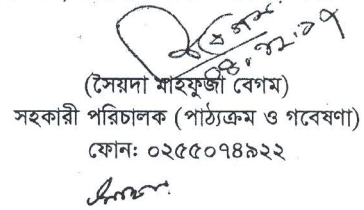 ০৪.১২.১৭
(সৈয়দা মাহফুজা বেগম)
সহকারী পরিচালক (পাঠ্যক্রম ও গবেষণা)
ফোন: ০২৫৫০৭৪৯২২